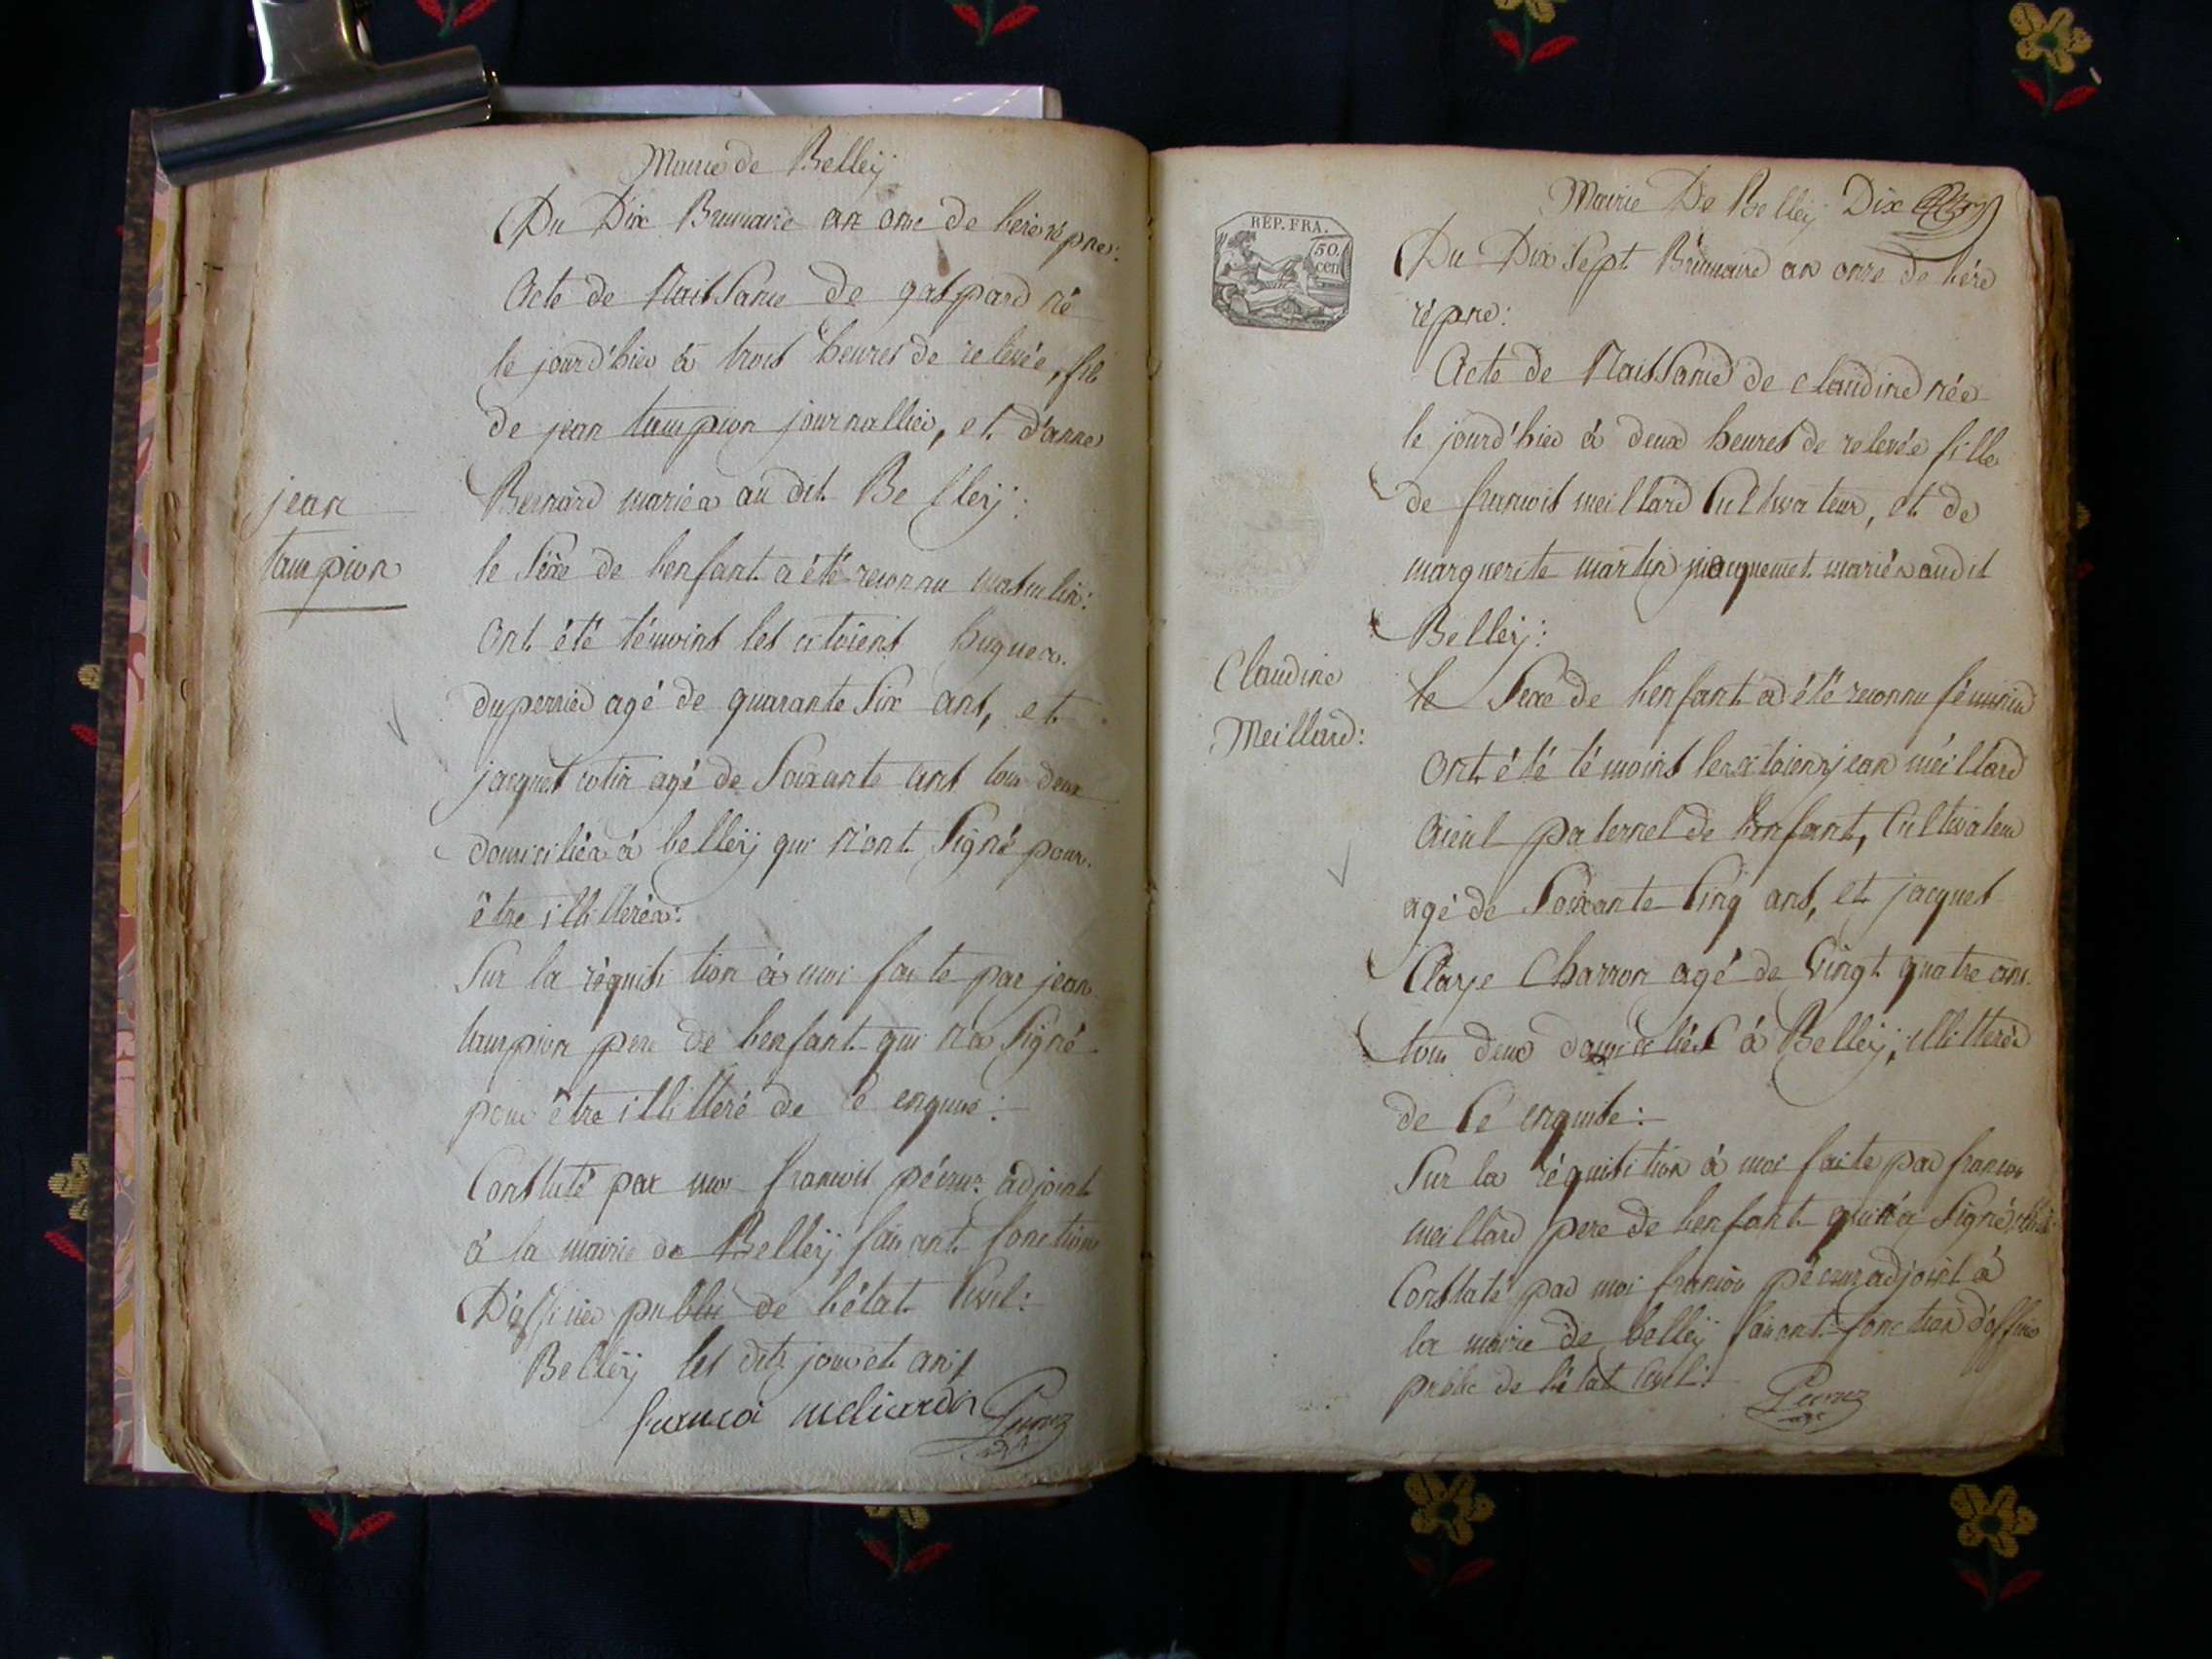 Mairie de Belleÿ
Du Dix Brumaire an onze de l'ère répne:
Acte de Naissance de gaspard né
le jourd'hier à trois heures de relevée, fils
de jean tampion journallier, et d'anne
Bernard mariés au dit Belleÿ:
jean
tampion
le Sexe de l'enfant a été reconnu masculin:
Ont été témoins les citoiens hugues
duperrier agé de quarante Six ans, et
jacques cotin agé de Soixante ans tous deux
domiciliés à belleÿ qui n'ont Signé pour
être illitterés:
Sur la réquisition à moi faite par jean
tampion pere de l'enfant qui n'a Signé
pour être illitteré de ce enquis:
Constaté par moi francois adjoint
à la mairie de Belleÿ faisant fonctions
D'officier public de l'état Civil:
Belleÿ les dits jour et an
Mairie De Belleÿ Dix
REP. FRA.
50.
cen
Du Dix Sept Brumaire an onze de l'ère
répne:
Acte de Naissance de claudine née
le jourd'hier à deux heures de relevée fille
de francois meillard Cultivateur, et de
marguerite martin jacquemet mariés audit
Belleÿ:
Claudine
Meillard:
le Sexe de l'enfant a été reconnu féminin
Ont été témoins les citoiens jean meillard
Aieul paternel de l'enfant, Cultivateur
agé de Soixante Cinq ans, et jacques
Charron agé de Vingt quatre ans
tous deux domiciliés à Belleÿ, illitterés
de Ce enquise:
Sur la réquisition à moi faite par francois
meillard pere de l'enfant qui n'a Signé
Constaté par moi francois adjoint à
la mairie de belleÿ faisant fonction d'officier
public de l'état Civil: